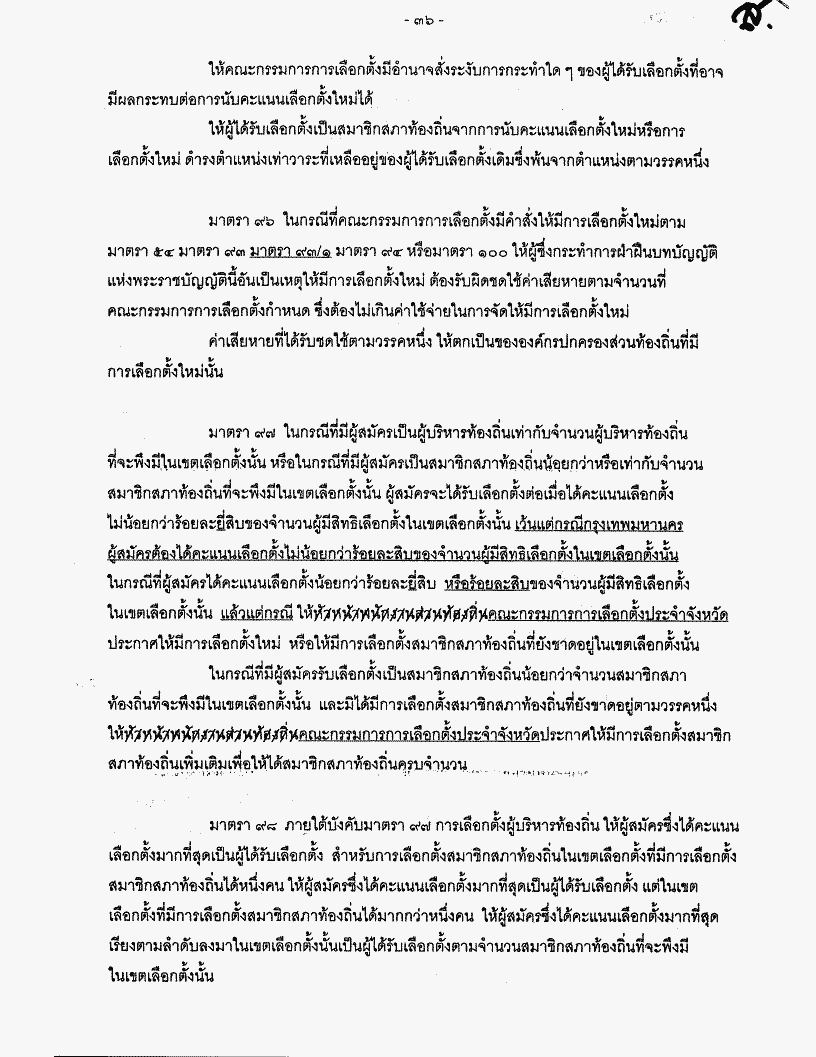 - ๓๖ -
ให้คณะกรรมการการเลือกตั้งมีอำนาจสั่งระงับการกระทำใด ๆ ของผู้ได้รับเลือกตั้งที่อาจ
มีผลกระทบต่อการนับคะแนนเลือกตั้งใหม่ได้
ให้ผู้ได้รับเลือกตั้งเป็นสมาชิกสภาท้องถิ่นจากการนับคะแนนเลือกตั้งใหม่หรือการ
เลือกตั้งใหม่ ดำรงตำแหน่งเท่าวาระที่เหลืออยู่ของผู้ได้รับเลือกตั้งเดิมซึ่งพ้นจากตำแหน่งตามวรรคหนึ่ง
มาตรา ๙๖ ในกรณีที่คณะกรรมการการเลือกตั้งมีคำสั่งให้มีการเลือกตั้งใหม่ตาม
มาตรา ๕๔ มาตรา ๙๓ มาตรา ๙๓/๑ มาตรา ๙๔ หรือมาตรา ๑๐๐ ให้ผู้ซึ่งกระทำการฝ่าฝืนบทบัญญัติ
แห่งพระราชบัญญัตินี้อันเป็นเหตุให้มีการเลือกตั้งใหม่ ต้องรับผิดชดใช้ค่าเสียหายตามจำนวนที่
คณะกรรมการการเลือกตั้งกำหนด ซึ่งต้องไม่เกินค่าใช้จ่ายในการจัดให้มีการเลือกตั้งใหม่
ค่าเสียหายที่ได้รับชดใช้ตามวรรคหนึ่ง ให้ตกเป็นขององค์กรปกครองส่วนท้องถิ่นที่มี
การเลือกตั้งใหม่นั้น
มาตรา ๙๗ ในกรณีที่มีผู้สมัครเป็นผู้บริหารท้องถิ่นเท่ากับจำนวนผู้บริหารท้องถิ่น
ที่จะพึงมีในเขตเลือกตั้งนั้น หรือในกรณีที่มีผู้สมัครเป็นสมาชิกสภาท้องถิ่นน้อยกว่าหรือเท่ากับจำนวน
สมาชิกสภาท้องถิ่นที่จะพึงมีในเขตเลือกตั้งนั้น ผู้สมัครจะได้รับเลือกตั้งต่อเมื่อได้คะแนนเลือกตั้ง
ไม่น้อยกว่าร้อยละยี่สิบของจำนวนผู้มีสิทธิเลือกตั้งในเขตเลือกตั้งนั้น เว้นแต่กรณีกรุงเทพมหานคร
ผู้สมัครต้องได้คะแนนเลือกตั้งไม่น้อยกว่าร้อยละสิบของจำนวนผู้มีสิทธิเลือกตั้งในเขตเลือกตั้งนั้น
ในกรณีที่ผู้สมัครได้คะแนนเลือกตั้งน้อยกว่าร้อยละยี่สิบ หรือร้อยละสิบของจำนวนผู้มีสิทธิเลือกตั้ง
ในเขตเลือกตั้งนั้น แล้วแต่กรณี ให้หัวหน้าพนักงานส่วนท้องถิ่นคณะกรรมการการเลือกตั้งประจำจังหวัด
ประกาศให้มีการเลือกตั้งใหม่ หรือให้มีการเลือกตั้งสมาชิกสภาท้องถิ่นที่ยังขาดอยู่ในเขตเลือกตั้งนั้น
ในกรณีที่มีผู้สมัครรับเลือกตั้งเป็นสมาชิกสภาท้องถิ่นน้อยกว่าจำนวนสมาชิกสภา
ท้องถิ่นที่จะพึงมีในเขตเลือกตั้งนั้น และมิได้มีการเลือกตั้งสมาชิกสภาท้องถิ่นที่ยังขาดอยู่ตามวรรคหนึ่ง
ให้หัวหน้าพนักงานส่วนท้องถิ่นคณะกรรมการการเลือกตั้งประจำจังหวัดประกาศให้มีการเลือกตั้งสมาชิก
สภาท้องถิ่นเพิ่มเติมเพื่อให้ได้สมาชิกสภาท้องถิ่นครบจำนวน
มาตรา ๙๘ ภายใต้บังคับมาตรา ๙๗ การเลือกตั้งผู้บริหารท้องถิ่น ให้ผู้สมัครซึ่งได้คะแนน
เลือกตั้งมากที่สุดเป็นผู้ได้รับเลือกตั้ง สำหรับการเลือกตั้งสมาชิกสภาท้องถิ่นในเขตเลือกตั้งที่มีการเลือกตั้ง
สมาชิกสภาท้องถิ่นได้หนึ่งคน ให้ผู้สมัครซึ่งได้คะแนนเลือกตั้งมากที่สุดเป็นผู้ได้รับเลือกตั้ง แต่ในเขต
เลือกตั้งที่มีการเลือกตั้งสมาชิกสภาท้องถิ่นได้มากกว่าหนึ่งคน ให้ผู้สมัครซึ่งได้คะแนนเลือกตั้งมากที่สุด
เรียงตามลำดับลงมาในเขตเลือกตั้งนั้นเป็นผู้ได้รับเลือกตั้งตามจำนวนสมาชิกสภาท้องถิ่นที่จะพึงมี
ในเขตเลือกตั้งนั้น